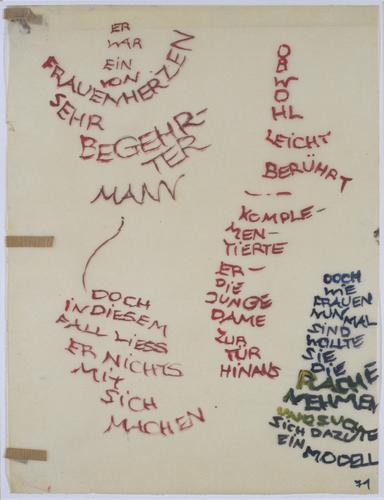 ER
WAR
EIN
VON
FRAUENHERZEN
SEHR
BEGEHR-
TER
MANN
DOCH
IN DIESEM
FALL LIESS
ER NICHTS
MIT
SICH
MACHEN
OBWO
HL
LEICHT
BERÜHRT
KOMPLE-
MEN-
TIERTE
ER-
DIE
JUNGE
DAME
ZUR
TÜR
HINAUS
DOCH
WIE
FRAUEN
NUN MAL
SIND
WOLLTE
SIE
DIE
RACHE
NEHMEN
UND SUCHTE
SICH DAZU
EIN
MODELL
71